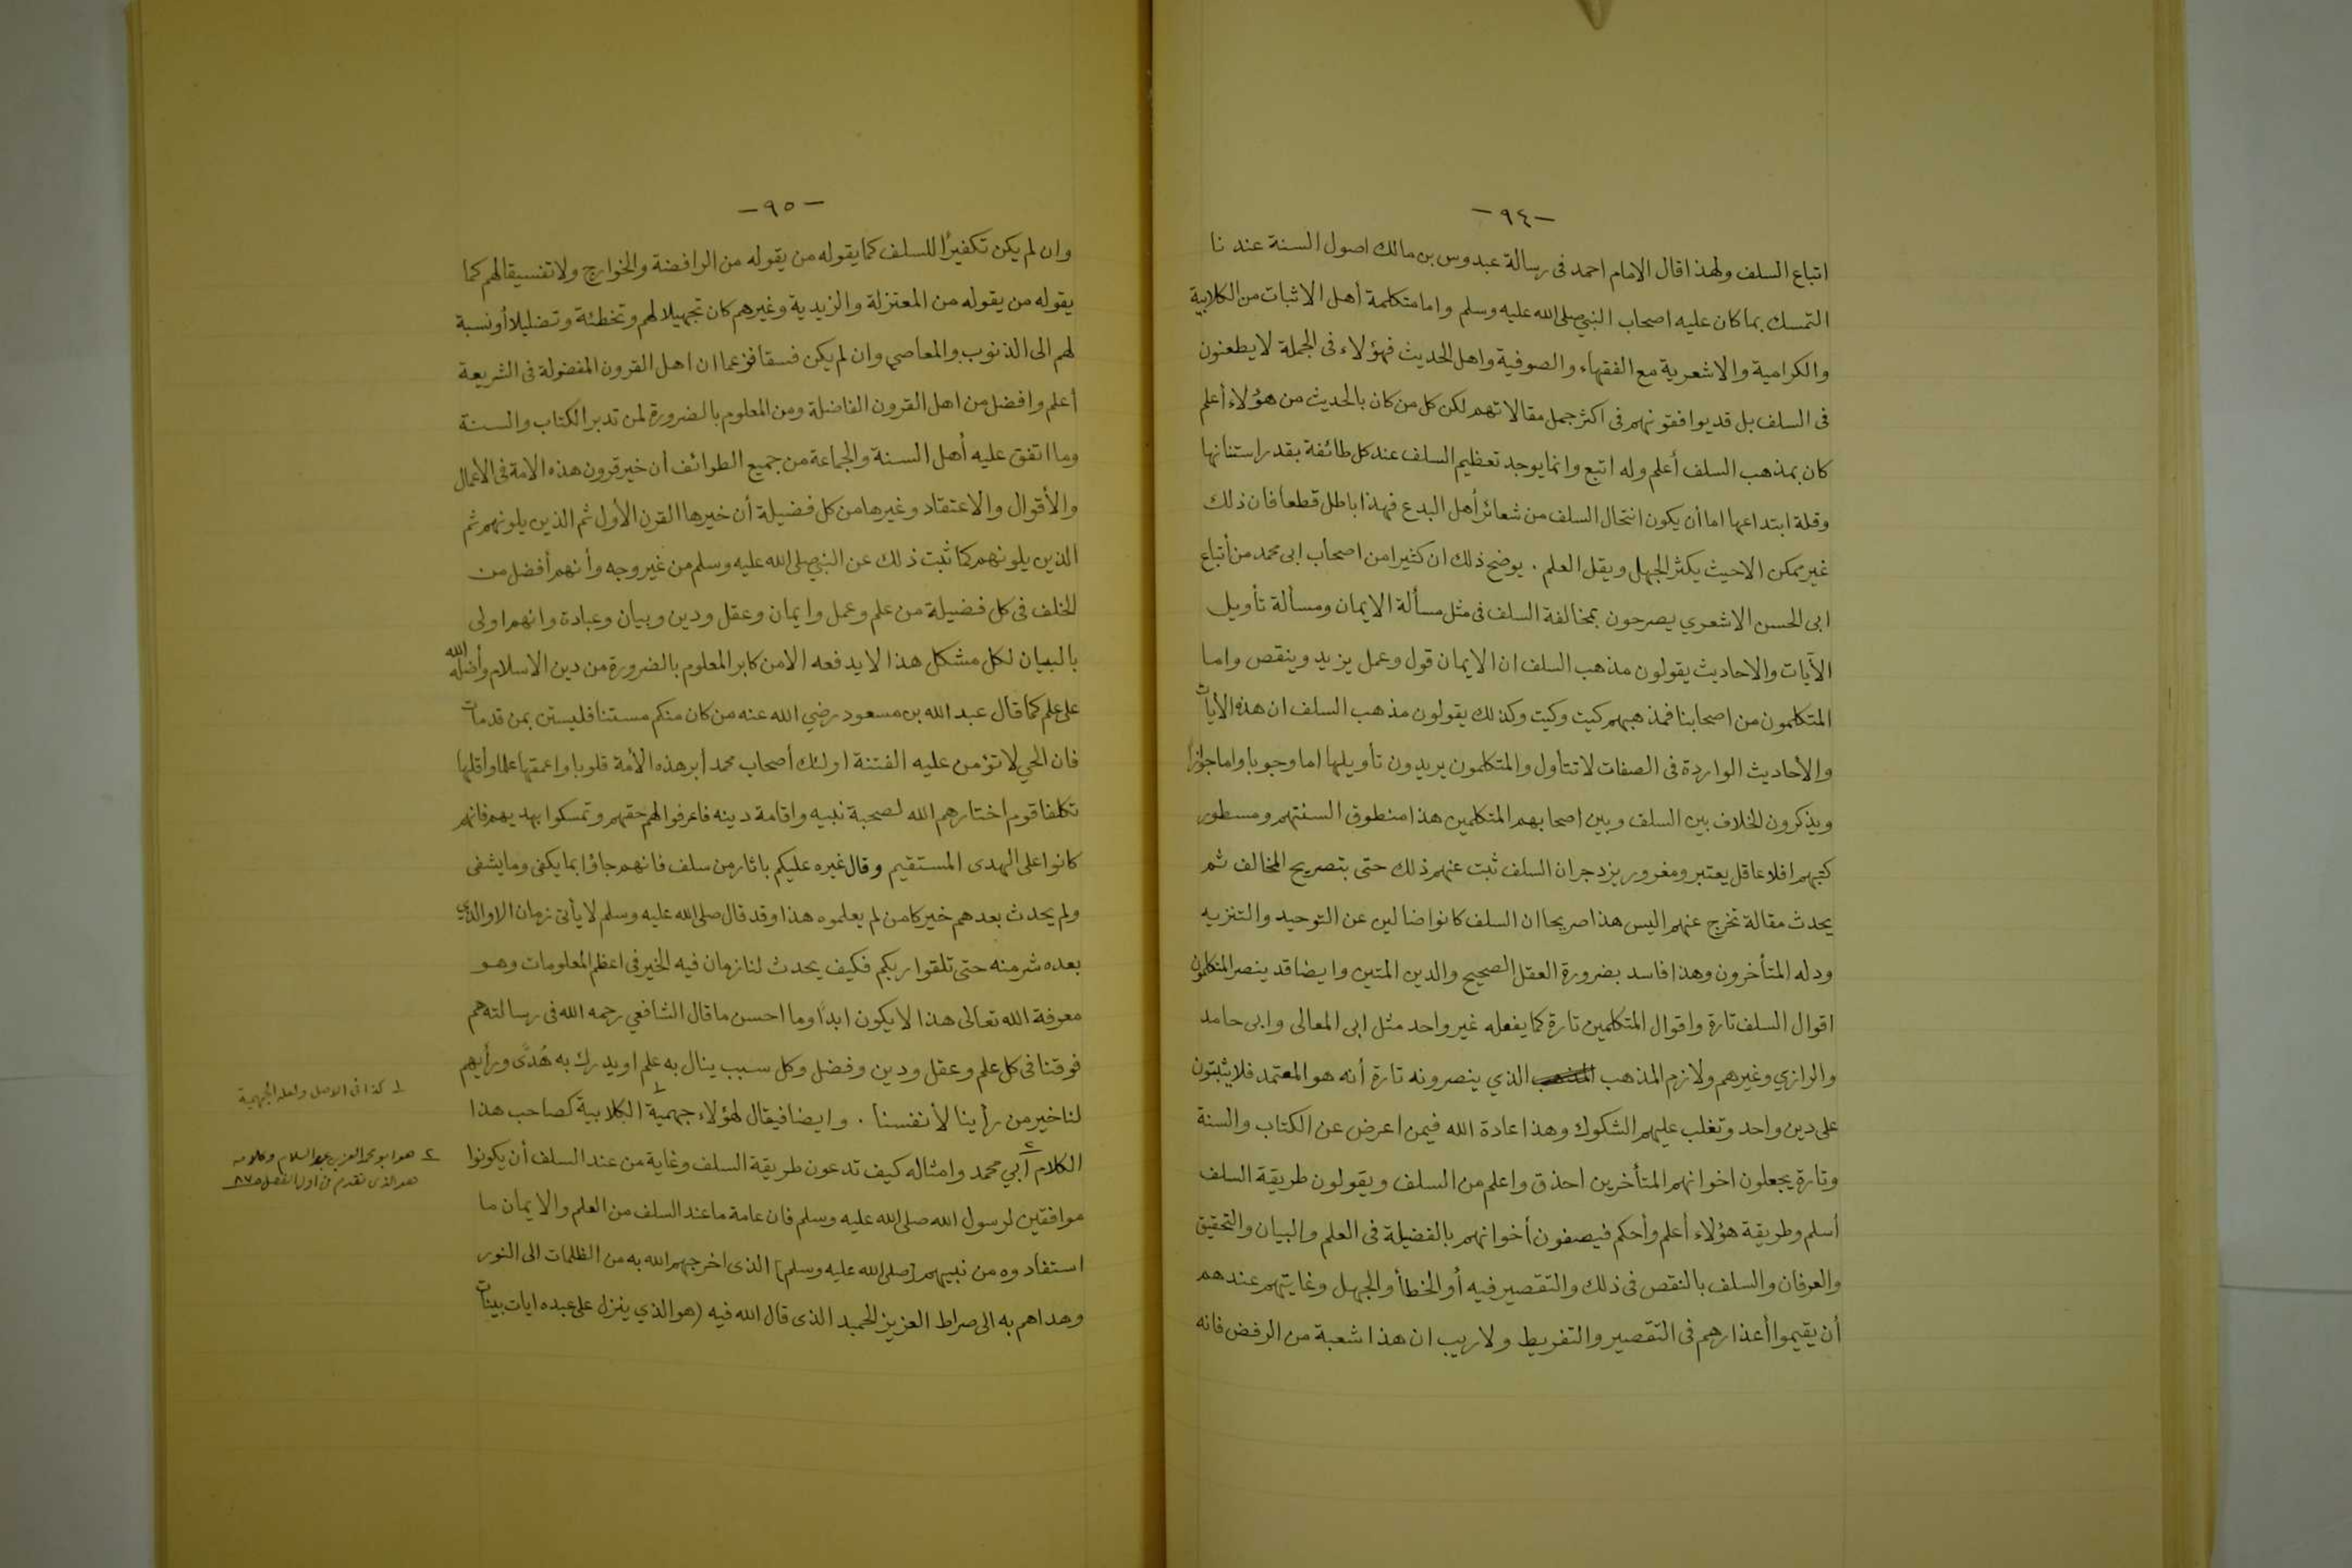 -٩٤-
اتباع السلف ولهذا قال الامام احمد فى رسالة عبدوس بن مالك اصول السنة عندنا
التمسك بما كان عليه اصحاب النبي صلى الله عليه وسلم واما متكلمة أهل الاثبات من الكلابية
والكرامية والاشعرية مع الفقهاء والصوفية واهل الحديث فهؤلاء فى الجملة لا يطعنون
فى السلف بل قد يوافقونهم فى اكثر جمل مقالاتهم لكن كل من كان بالحديث من هؤلاء أعلم
كان بمذهب السلف أعلم وله اتبع وانما يوجد تعظيم السلف عند كل طائفة بقدر استنانها
وقلة ابتداعها اما أن يكون انتحال السلف من شعائر أهل البدع فهذا باطل قطعا فان ذلك
غير ممكن الا حيث يكثر الجهل ويقل العلم . يوضح ذلك ان كثيرا من اصحاب ابى محمد من أتباع
ابى الحسن الاشعري يصرحون بمخالفة السلف فى مثل مسألة الايمان ومسألة تأويل
الآيات والاحاديث يقولون مذهب السلف ان الايمان قول وعمل يزيد وينقص واما
المتكلمون من اصحابنا فمذهبهم كيت وكيت وكذلك يقولون مذهب السلف ان هذه الأيات
والأحاديث الواردة فى الصفات لا تتأول والمتكلمون يريدون تأويلها اما وجوبا واما جوازاً
ويذكرون الخلاف بين السلف وبين اصحابهم المتكلمين هذا منطوق السنتهم ومسطور
كتبهم افلا عاقل يعتبر ومغرور يزدجر ان السلف ثبت عنهم ذلك حتى بتصريح المخالف ثم
يحدث مقالة تخرج عنهم اليس هذا صريحا ان السلف كانوا ضالين عن التوحيد والتنزيه
ودله المتأخرون وهذا فاسد بضرورة العقل الصحيح والدين المتين وايضا قد ينصر المتكلمون
اقوال السلف تارة واقوال المتكلمين تارة كما يفعله غير واحد مثل ابى المعالى وابى حامد
والرازي وغيرهم ولازم المذهب المذهب الذي ينصرونه تارة أنه هو المعتمد فلا يثبتون
على دين واحد وتغلب عليهم الشكوك وهذا عادة الله فيمن اعرض عن الكتاب والسنة
وتارة يجعلون اخوانهم المتأخرين احذق واعلم من السلف ويقولون طريقة السلف
أسلم وطريقة هؤلاء أعلم وأحكم فيصفون أخوانهم بالفضيلة فى العلم والبيان والتحقيق
والعرفان والسلف بالنقص فى ذلك والتقصير فيه أو الخطأ والجهل وغايتهم عندهم
أن يقيموا أعذارهم فى التقصير والتفريط ولا ريب ان هذا شعبة من الرفض فانه
-٩٥-
وان لم يكن تكفيرًا للسلف كما يقوله من يقوله من الرافضة والخوارج ولا تفسيقا لهم كما
يقوله من يقوله من المعتزلة والزيدية وغيرهم كان تجهيلا لهم وتخطئة وتضليلا أو نسبة
لهم الى الذنوب والمعاصي وان لم يكن فسقا فزعما ان اهل القرون المفضولة فى الشريعة
أعلم وافضل من اهل القرون الفاضلة ومن المعلوم بالضرورة لمن تدبر الكتاب والسنة
وما اتفق عليه أهل السنة والجماعة من جميع الطوائف أن خير قرون هذه الامة فى الاعمال
والأقوال والاعتقاد وغيرها من كل فضيلة أن خيرها القرن الأول ثم الذين يلونهم ثم
الذين يلونهم كما ثبت ذلك عن النبي صلى الله عليه وسلم من غير وجه وأنهم أفضل من
الخلف فى كل فضيلة من علم وعمل وايمان وعقل ودين وبيان وعبادة وانهم اولى
بالبيان لكل مشكل هذا لا يدفعه الا من كابر المعلوم بالضرورة من دين الاسلام وأضله الله
على علم كما قال عبد الله بن مسعود رضي الله عنه من كان منكم مستنا فليستن بمن قد مات
فان الحي لا تؤمن عليه الفتنة اولئك أصحاب محمد أبر هذه الأمة قلوبا واعمقها علما وأقلها
تكلفا قوم اختارهم الله لصحبة نبيه واقامة دينه فاعرفوا لهم حقهم وتمسكوا بهديهم فانهم
كانوا على الهدى المستقيم وقال غيره عليكم باثار من سلف فانهم جاؤا بما يكفى وما يشفى
ولم يحدث بعدهم خير كامن لم يعلموه هذا وقد قال صلى الله عليه وسلم لا يأتى زمان الا والذي
بعده شر منه حتى تلقوا ربكم فكيف يحدث لنا زمان فيه الخير فى اعظم المعلومات وهو
معرفة الله تعالى هذا لا يكون ابدًا وما احسن ما قال الشافعي رحمه الله فى رسالته هم
فوقنا فى كل علم وعقل ودين وفضل وكل سبب ينال به علم او يدرك به هُدًى ورأيهم
لنا خير من رأينا لأنفسنا . وايضا فيقال لهؤلاء جهمية ١ الكلابية كصاحب هذا
الكلام أبي محمد ٢ وامثاله كيف تدعون طريقة السلف وغاية من عند السلف أن يكونوا
موافقين لرسول الله صلى الله عليه وسلم فان عامة ما عند السلف من العلم والايمان ما
استفادوه من نبيهم [صلى الله عليه وسلم] الذى اخرجهم الله به من الظلمات الى النور
وهداهم به الى صراط العزيز الحميد الذى قال الله فيه (هو الذي ينزل على عبده ايات بينات
١ كذا فى الاصل ولعله الجهمية
٢ هو ابو محمد العز بن عبد السلام وكلامه
هو الذى تقدم فى اول الفصل ص ٨٧